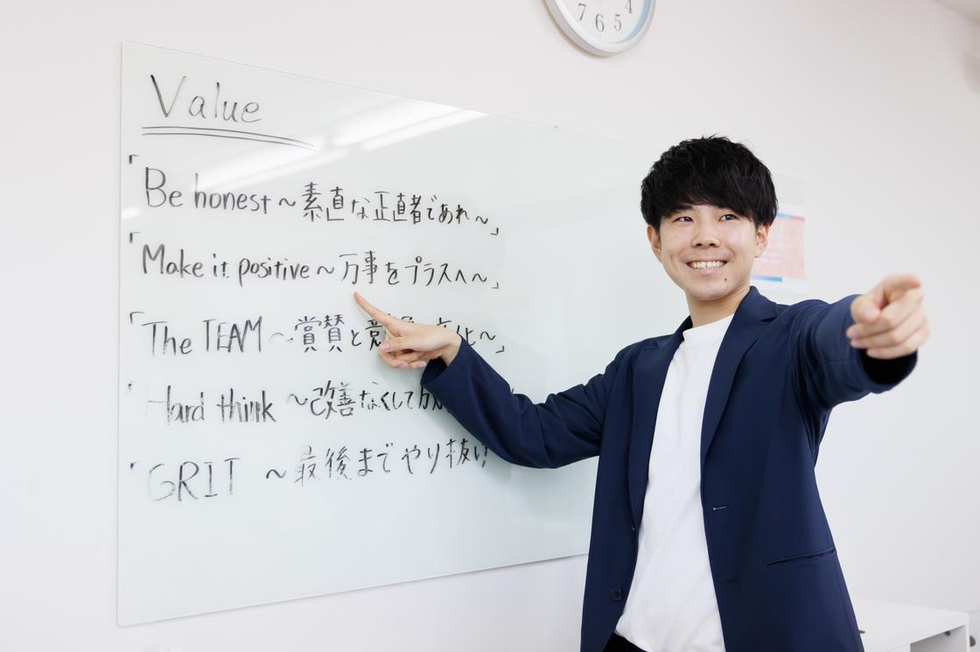 7 6 5 4
Value
「Be honest ～素直な正直者であれ～」
「Make it positive ～万事をプラスへ～」
「The TEAM ～賞賛と 化～」
Hard think ～改善なくして
「GRIT ～最後までやり抜